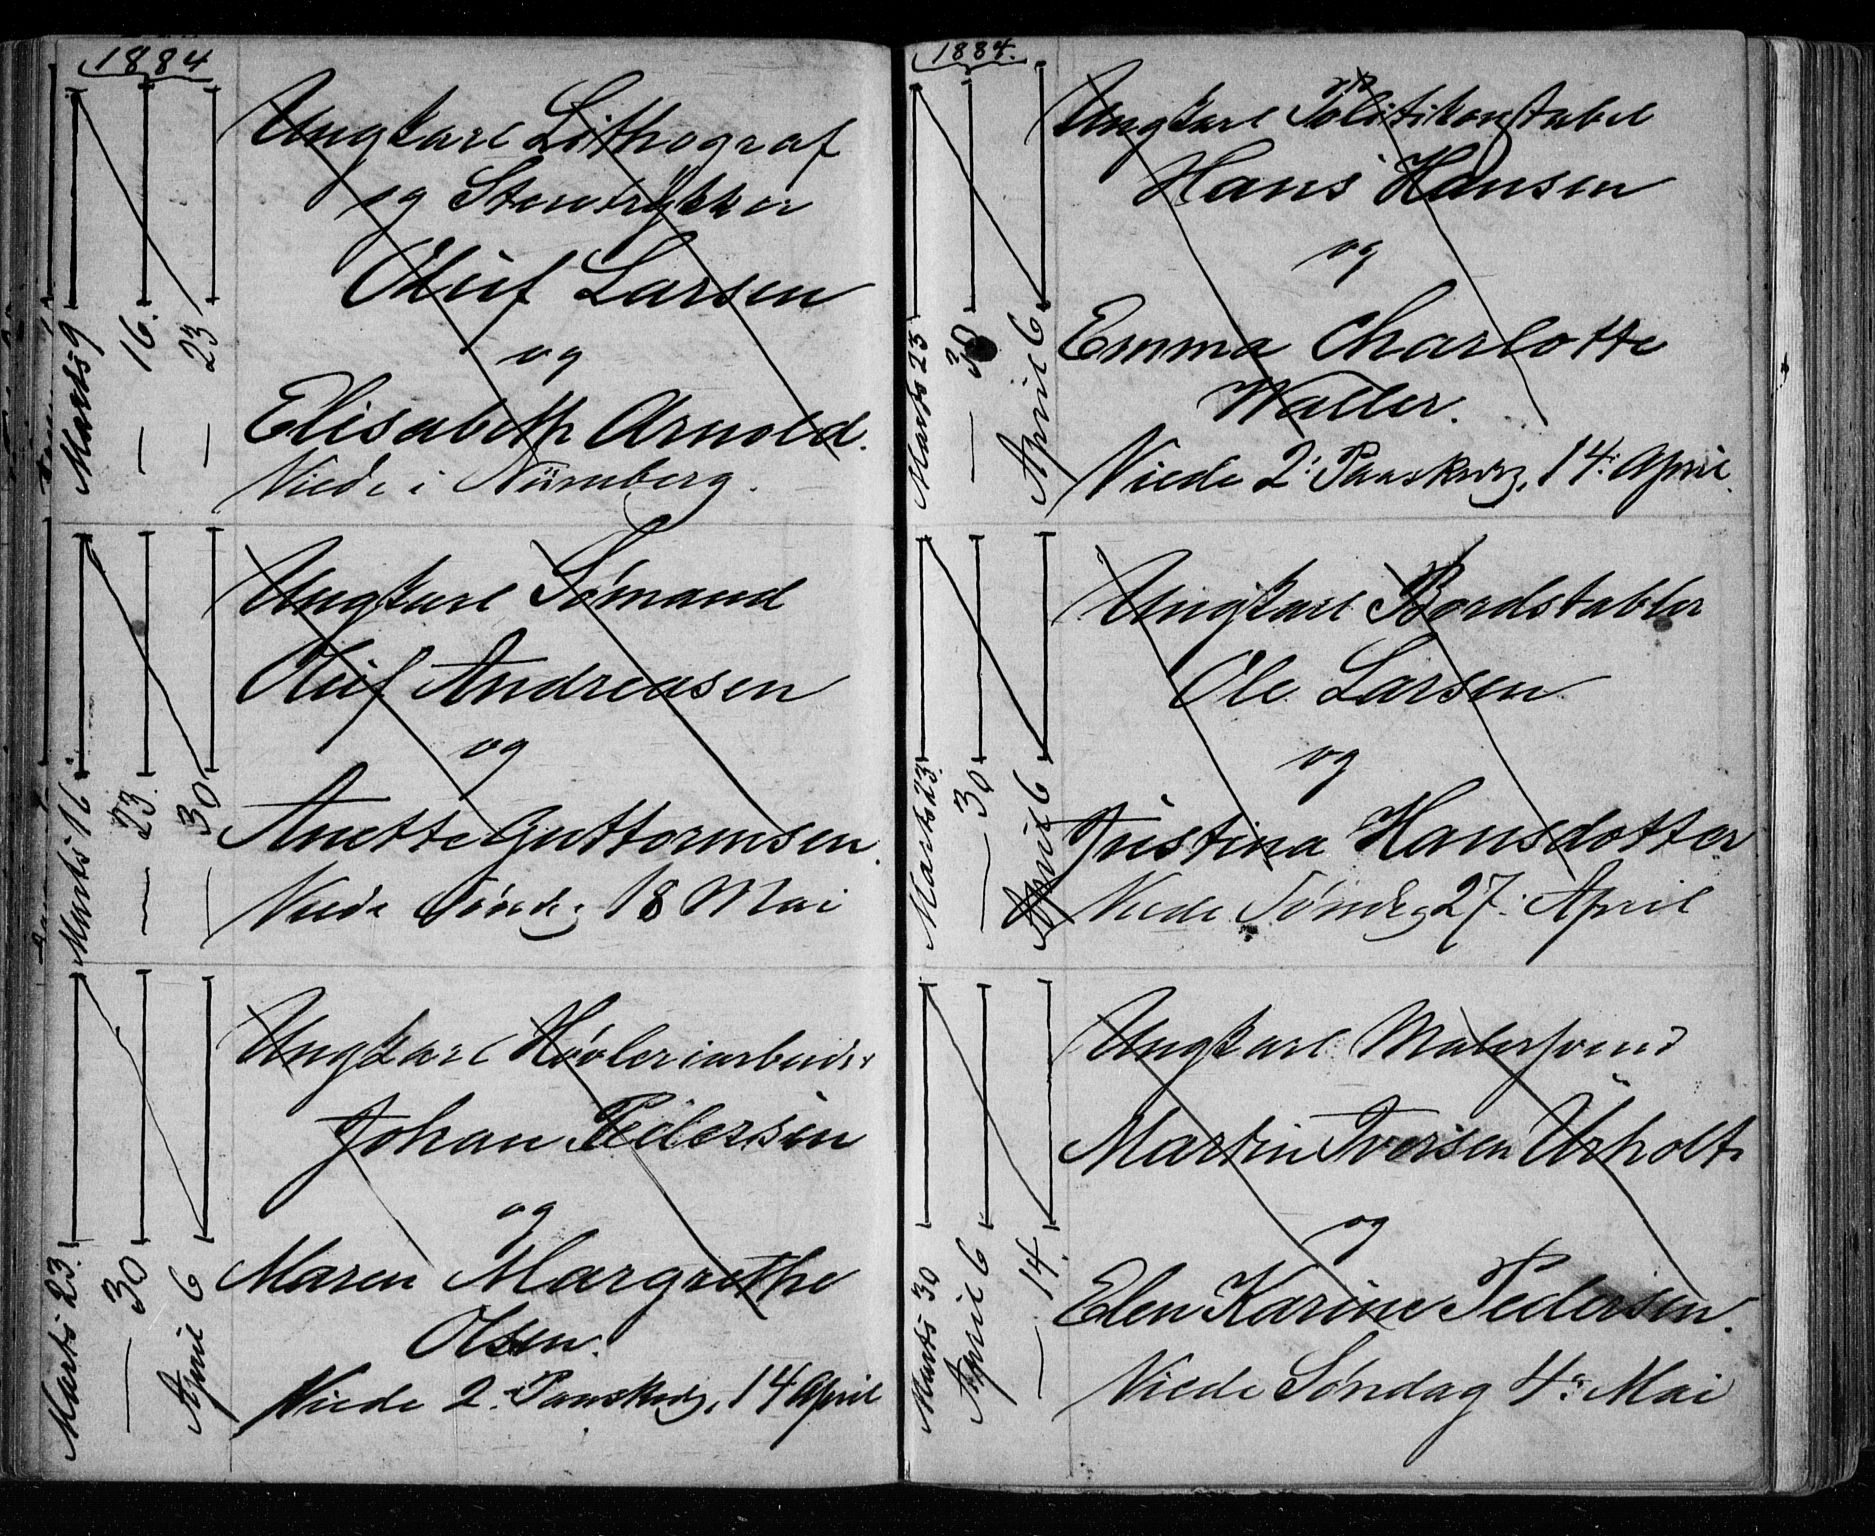 1884
Marts 9
— 16.
— 23
Ungkarl Lithograf
og Stentrykker
Oluf Larsen
og
Elisabeth Arnold.
Viede i Nürnberg.
Marts 16
— 23.
— 30
Ungkarl Sømand
Oluf Andreasen
og
Anette Guttormsen.
Viede Søndg 18 Mai
Marts 23.
— 30
April 6
Ungkarl Høvleriarbeider
Johan Pedersen
og
Maren Margrethe
Olsen.
Viede 2. Paaskedg, 14 April
1884.
Marts 23
— 30
April 6
Ungkarl Politikonstabel
Hans Hansen
og
Emma Charlotte
Waller.
Viede 2: Paaskedg, 14: April.
Marts 23
— 30
April 6
Ungkarl Bordstabler
Ole Larsen
og
Justina Hansdotter
Viede Søndg 27: April
Marts 30
April 6
— 14.
Ungkarl Malersvend
Martin Iversen Urholt
og
Elen Karine Pedersen.
Viede Søndag 4: Mai